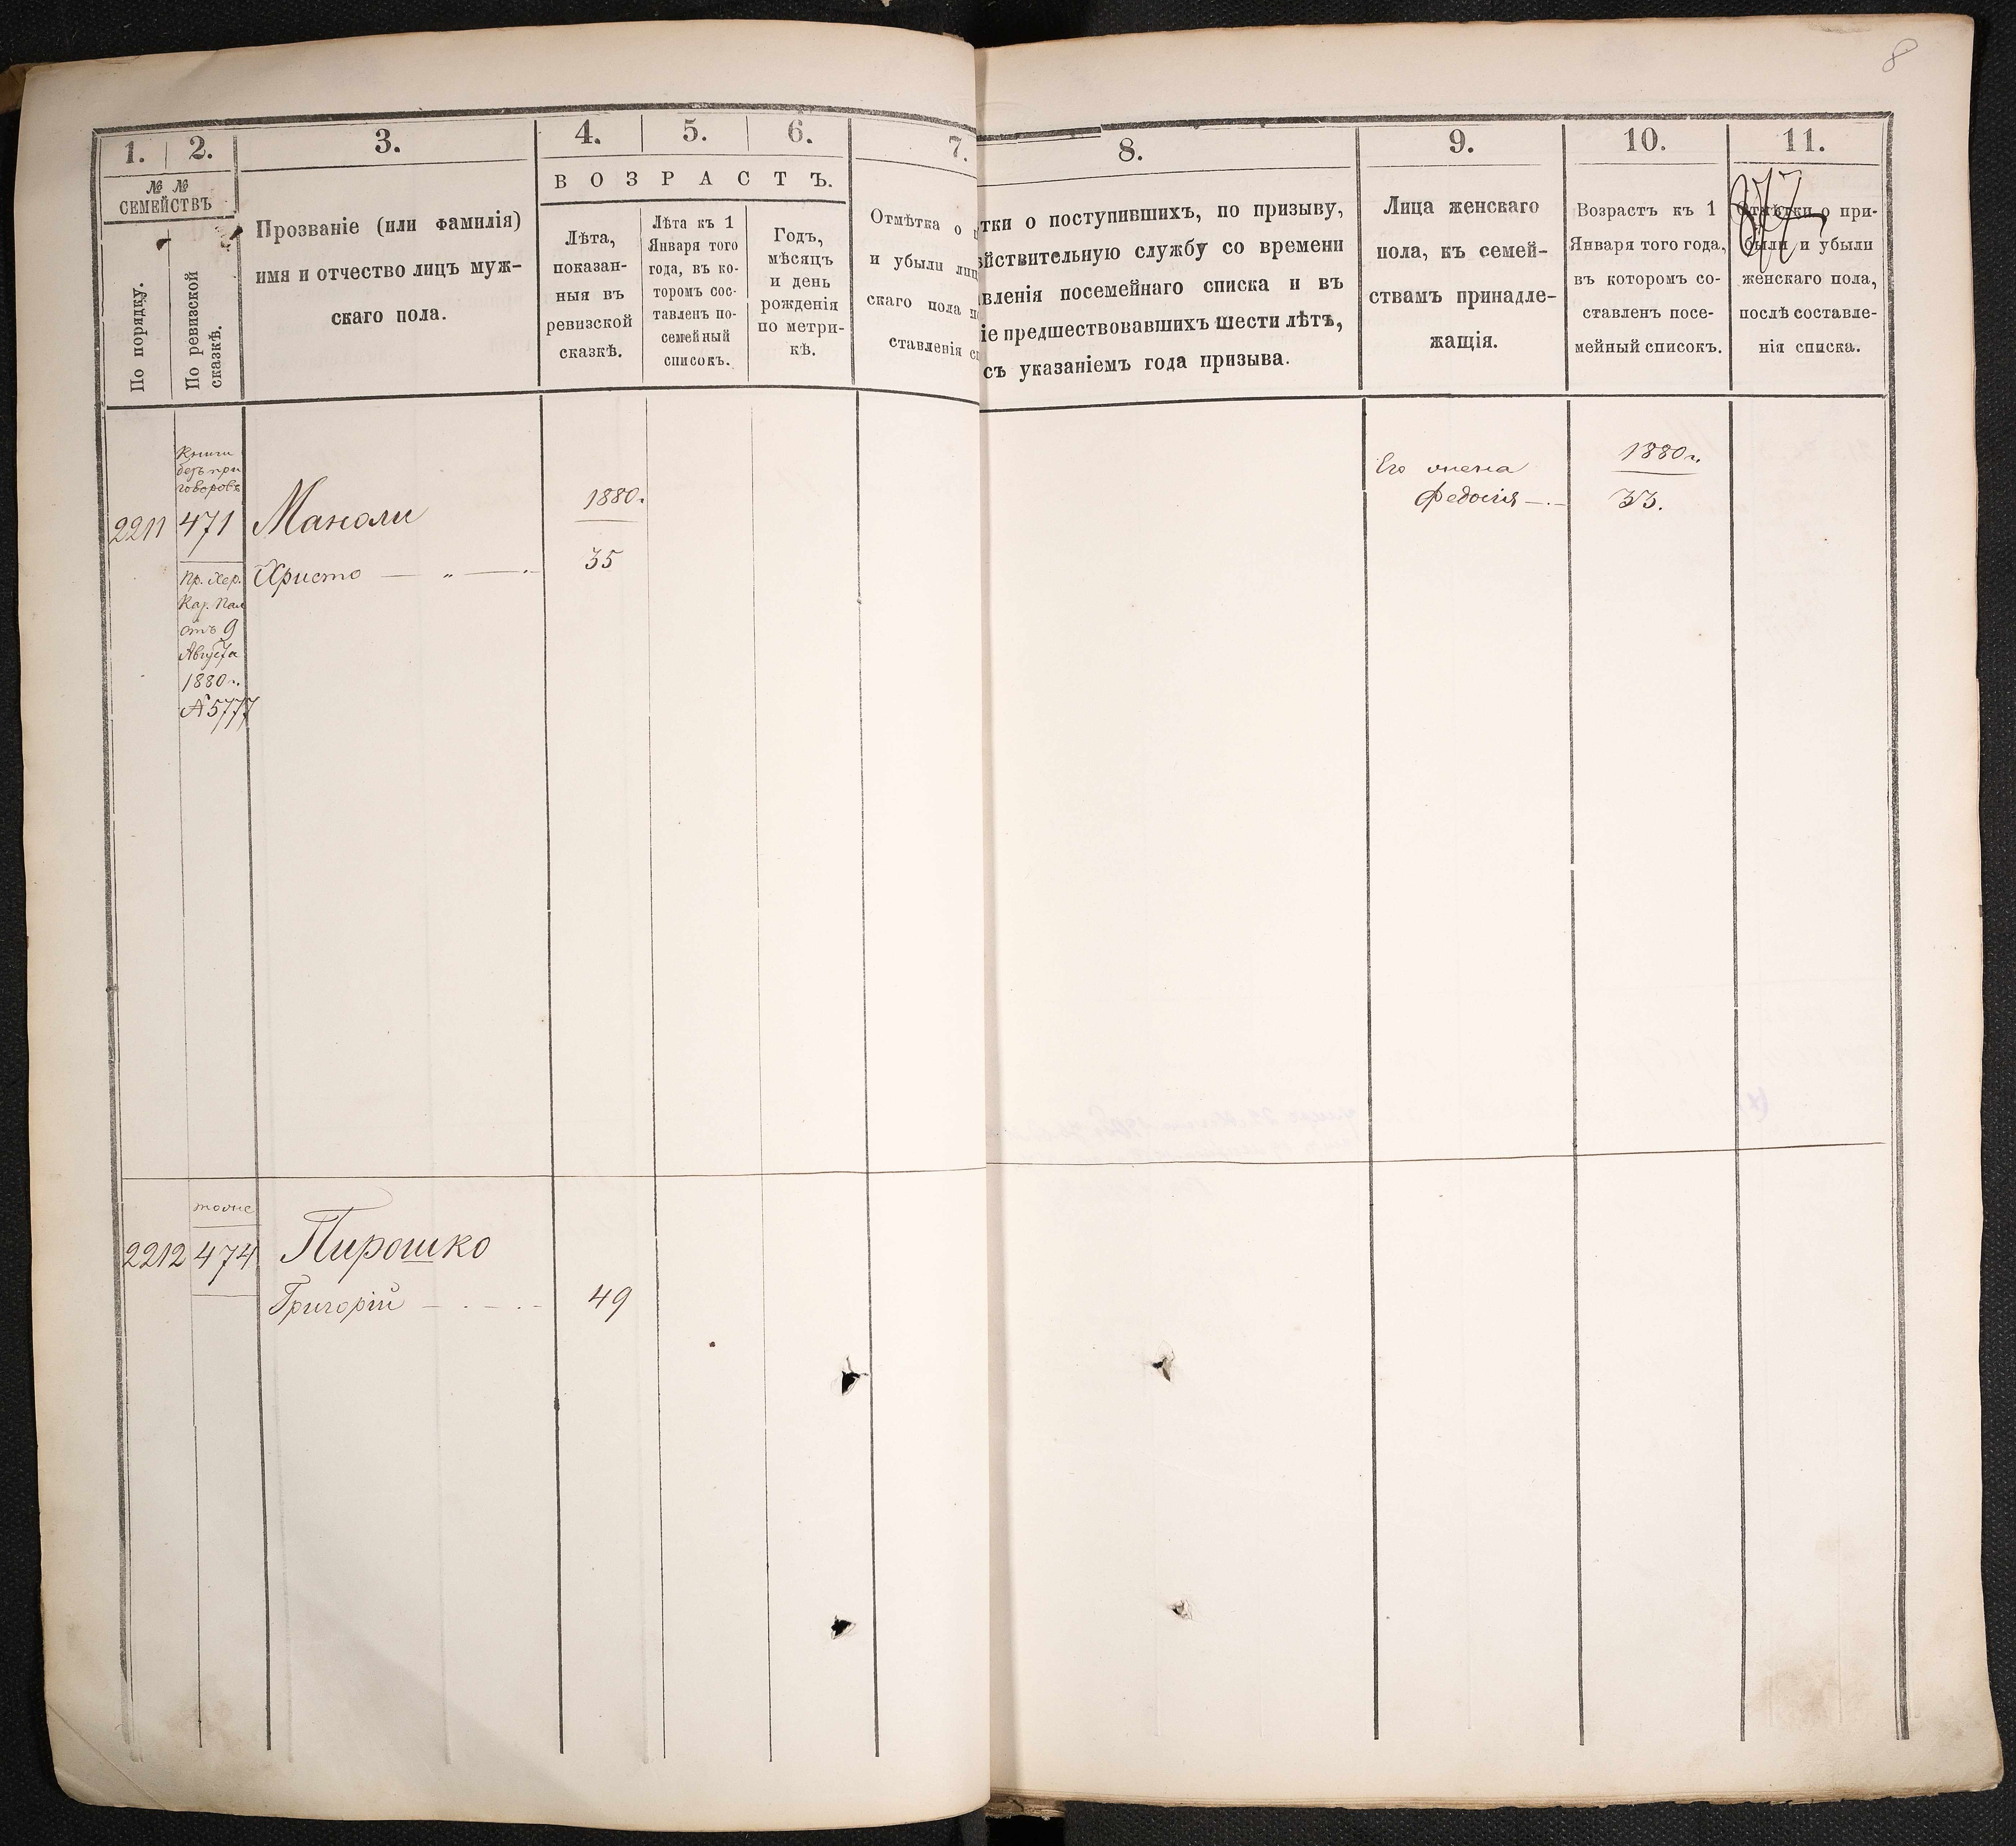 8
1.
2.
3.
4.
5.
6.
7.
№ №
СЕМЕЙСТВЪ
По порядку.
По ревизской
сказкѣ.
Прозваніе (или фамилія)
имя и отчество лицъ муж-
скаго пола.
ВОЗРАСТЪ.
Лѣта,
показан-
ныя въ
ревизской
сказкѣ.
Лѣта къ 1
Января того
года, въ ко-
торомъ сос-
тавленъ по-
семейный
списокъ.
Годъ,
мѣсяцъ
и день
рожденія
по метри-
кѣ.
Отмѣтка о
и убыли лиц
скаго пола
ставленія
8.
9.
10.
11.
тки о поступившихъ, по призыву,
йствительную службу со времени
вленія посемейнаго списка и въ
іе предшествовавшихъ шести лѣтъ,
съ указаніемъ года призыва.
Лица женскаго
пола, къ семей-
ствамъ принадле-
жащія.
Возрастъ къ 1
Января того года,
въ которомъ со-
ставленъ посе-
мейный списокъ.
Отмѣтки о при-
были и убыли
женскаго пола,
послѣ составле-
нія списка.
Книги
безъ при
говоровъ
2211
471
Маноли
1880.
Христо — „ —
35
Пр. Хер.
Каз. Пал
отъ 9
Августа
1880 г.
№ 5777
Его жена
Федосія —
1880 г.
33.
тоже
2212
474
Пирошко
Григорій —
49